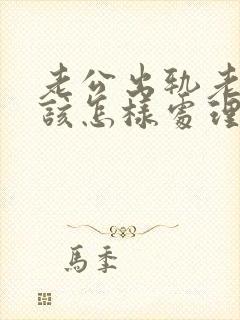 老公出轨老
该怎样处理
馬季